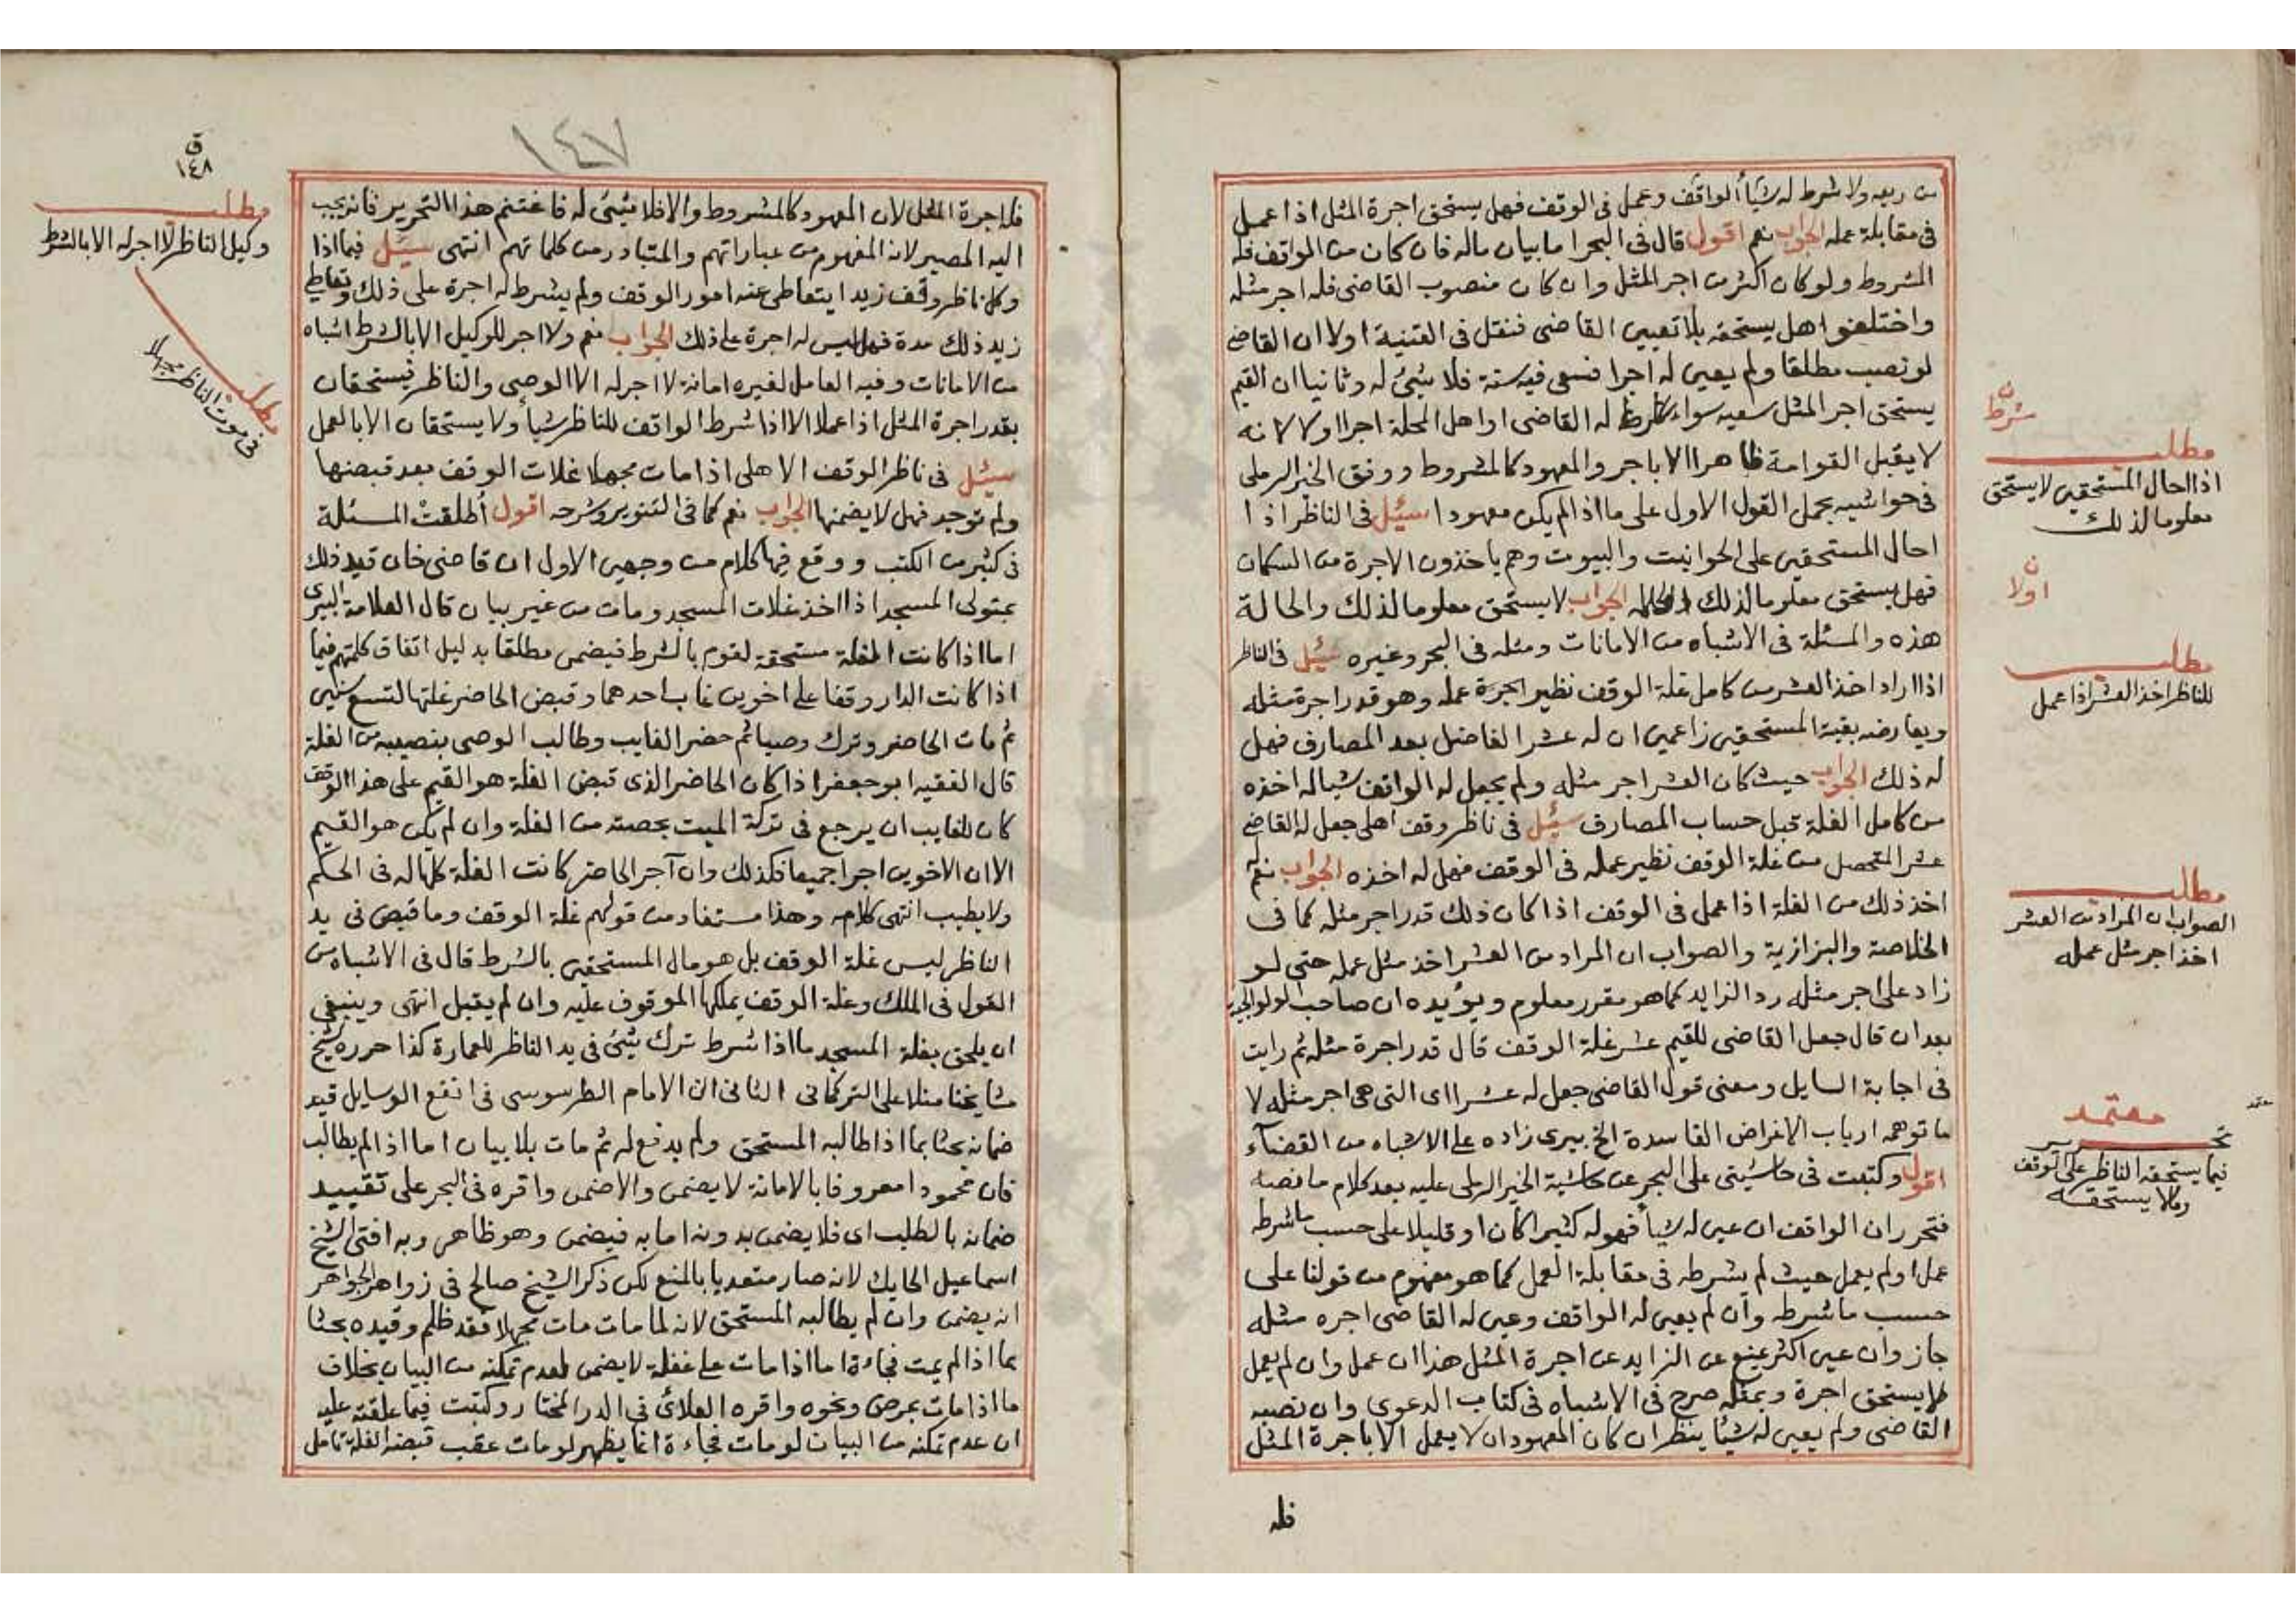 من ريعه ولا شرط له شيأ الواقف وعمل فى الوقف فهل يستحق اجرة المثل اذا عمل
فى مقابلة عمله الجواب نعم اقول قال فى البحر اما بيان ماله فان كان من الواقف فله
المشروط ولو كان اكثر من اجر المثل وان كان منصوب القاضى فله اجر مثله
واختلفوا هل يستحقه بلا تعيين القاضى فنقل فى القنية اولا ان القاضى
لو نصب مطلقا ولم يعين له اجرا فسعى فيه سنة فلا شئ له وثانيا ان القيم
يستحق اجر المثل سعيه سواء شرط له القاضى او اهل المحلة اجرا اولا لانه
لا يقبل القوامة ظاهرا الا باجر والمعهود كالمشروط ووفق الخير الرملى
فى حواشيه بحمل القول الاول على ما اذا لم يكن معهودا سئل فى الناظر اذا
احال المستحقين على الحوانيت والبيوت وهم ياخذون الاجرة من السكان
فهل يستحق معلوما لذلك الجواب لا يستحق معلوما لذلك والحالة
هذه والمسئلة فى الاشباه من الامانات ومثله فى البحر وغيره سئل فى الناظر
اذا اراد اخذ العشر من كامل غلة الوقف نظير اجرة عمله وهو قدر اجرة مثله
ويعارضه بقية المستحقين زاعمين ان له عشر الفاضل بعد المصارف فهل
له ذلك الجواب حيث كان العشر اجر مثله ولم يجعل له الواقف شيا له اخذه
من كامل الغلة قبل حساب المصارف سئل فى ناظر وقف اهلى جعل له القاضى
عشر المتحصل من غلة الوقف نظير عمله فى الوقف فهل له اخذه الجواب نعم له
اخذ ذلك من الغلة اذا عمل فى الوقف اذا كان ذلك قدر اجر مثله كما فى
الخلاصة والبزازية والصواب ان المراد من العشر اخذ مثل عمله حتى لو
زاد على اجر مثله رد الزايد كما هو مقرر معلوم ويؤيده ان صاحب الولوالجية
بعد ان قال جعل القاضى للقيم عشر غلة الوقف قال قدر اجرة مثله ثم رايت
فى اجابة السايل ومعنى قول القاضى جعل له عشرا اى التى هى اجر مثله لا
ما توهمه ارباب الاغراض الفاسدة الخ بيرى زاده على الاشباه من القضآء
اقول وكتبت فى حاشيتى على البحر عن حاشية الخير الرملى عليه بعد كلام ما نصه
فتحرر ان الواقف ان عين له شيأ فهو له كثيرا كان او قليلا على حسب ما شرطه
عمل اولم يعمل حيث لم يشرطه فى مقابلة العمل كما هو مفهوم من قولنا على
حسب ما شرطه وان لم يعين له الواقف وعين له القاضى اجره مثله
جاز وان عين اكثر يمنع عن الزايد عن اجرة المثل هذا ان عمل وان لم يعمل
لا يستحق اجرة وبمثله صرح فى الاشباه فى كتاب الدعوى وان نصبه
القاضى ولم يعين له شيئا ينظر ان كان المعهود ان لا يعمل الا باجرة المثل
فله
شرط ن
مطلب
اذا احال المستحقين لا يستحق
معلوما لذلك
ن
اولا
مطلب
للناظر اخذ العشر اذا عمل
مطلب
الصواب ان المراد من العشر
اخذ اجر مثل عمله
معتمد
معتمد
تحرير
فيما يستحقه الناظر على الوقف
وما لا يستحقه
١٤٧
ق
١٤٨
فله اجرة المثل لان المعهود كالمشروط والا فلا شئ له فاغتنم هذا التحرير فانه يجب
اليه المصير لانه المفهوم من عباراتهم والمتبادر من كلماتهم انتهى سئل فيما اذا
وكل ناظر وقف زيدا يتعاطى عنه امور الوقف ولم يشرط له اجرة على ذلك وتعاطى
زيد ذلك مدة فهل ليس له اجرة على ذلك الجواب نعم ولا اجر للوكيل الا بالشرط اشباه
من الامانات وفيه العامل لغيره امانة لا اجر له الا الوصى والناظر فيستحقان
بقدر اجرة المثل اذا عملا الا اذا شرط الواقف للناظر شيأ ولا يستحقان الا بالعمل
سئل فى ناظر الوقف الاهلى اذا مات مجهلا غلات الوقف بعد قبضها
ولم توجد فهل لا يضمنها الجواب نعم كما فى التنوير وشرحه اقول أطلقت المسئلة
فى كثير من الكتب ووقع فيها كلام من وجهين الاول ان قاضى خان قيد ذلك
بمتولى المسجد اذا اخذ غلات المسجد ومات من غير بيان قال العلامة البيرى
اما اذا كانت الغلة مستحقة لقوم بالشرط فيضمن مطلقا بدليل اتفاق كلمتهم فيما
اذا كانت الدار وقفا على اخوين غاب احدهما وقبض الحاضر غلتها لتسع سنين
ثم مات الحاضر وترك وصيا ثم حضر الغايب وطالب الوصى بنصيبه من الغلة
قال الفقيه ابو جعفر اذا كان الحاضر الذى قبض الغلة هو القيم على هذا الوقف
كان للغايب ان يرجع فى تركة الميت بحصته من الغلة وان لم يكن هو القيم
الا ان الاخوين اجرا جميعا فكذلك وان آجر الحاضر كانت الغلة كلها له فى الحكم
ولا يطيب انتهى كلامه وهذا مستفاد من قولهم غلة الوقف وما قبض فى يد
الناظر ليس غلة الوقف بل هو مال المستحقين بالشرط قال فى الاشباه من
القول فى الملك وغلة الوقف يملكها الموقوف عليه وان لم يقبل انتهى وينبغى
ان يلحق بغلة المسجد ما اذا شرط ترك شئ فى يد الناظر للعمارة كذا حرره شيخ
مشايخنا منلا على التركمانى الثانى ان الامام الطرسوسى فى انفع الوسايل قيد
ضمانه بحثا بما اذا طالبه المستحق ولم يدفع له ثم مات بلا بيان اما اذا لم يطالب
فان محمودا معروفا بالامانة لا يضمن والا ضمن واقره فى البحر على تقييد
ضمانه بالطلب اى فلا يضمن بدونه اما به فيضمن وهو ظاهر وبه افتى الشيخ
اسماعيل الحايك لانه صار متعديا بالمنع لكن ذكر الشيخ صالح فى زواهر الجواهر
انه يضمن وان لم يطالبه المستحق لانه لما مات مات مجهلا فقد ظلم وقيده بحثا
بما اذا لم يمت فجاءة اما اذا مات على غفلة لا يضمن لعدم تمكنه من البيان بخلاف
ما اذا مات بمرض ونحوه واقره العلائى فى الدر المختار وكتبت فيما علقته عليه
ان عدم تمكنه من البيان لو مات فجاءة انما يظهر لو مات عقب قبضه الغلة تامل
مطلب
وكيل الناظر لا اجر له الا بالشرط
مطلب
فى موت الناظر مجهلا